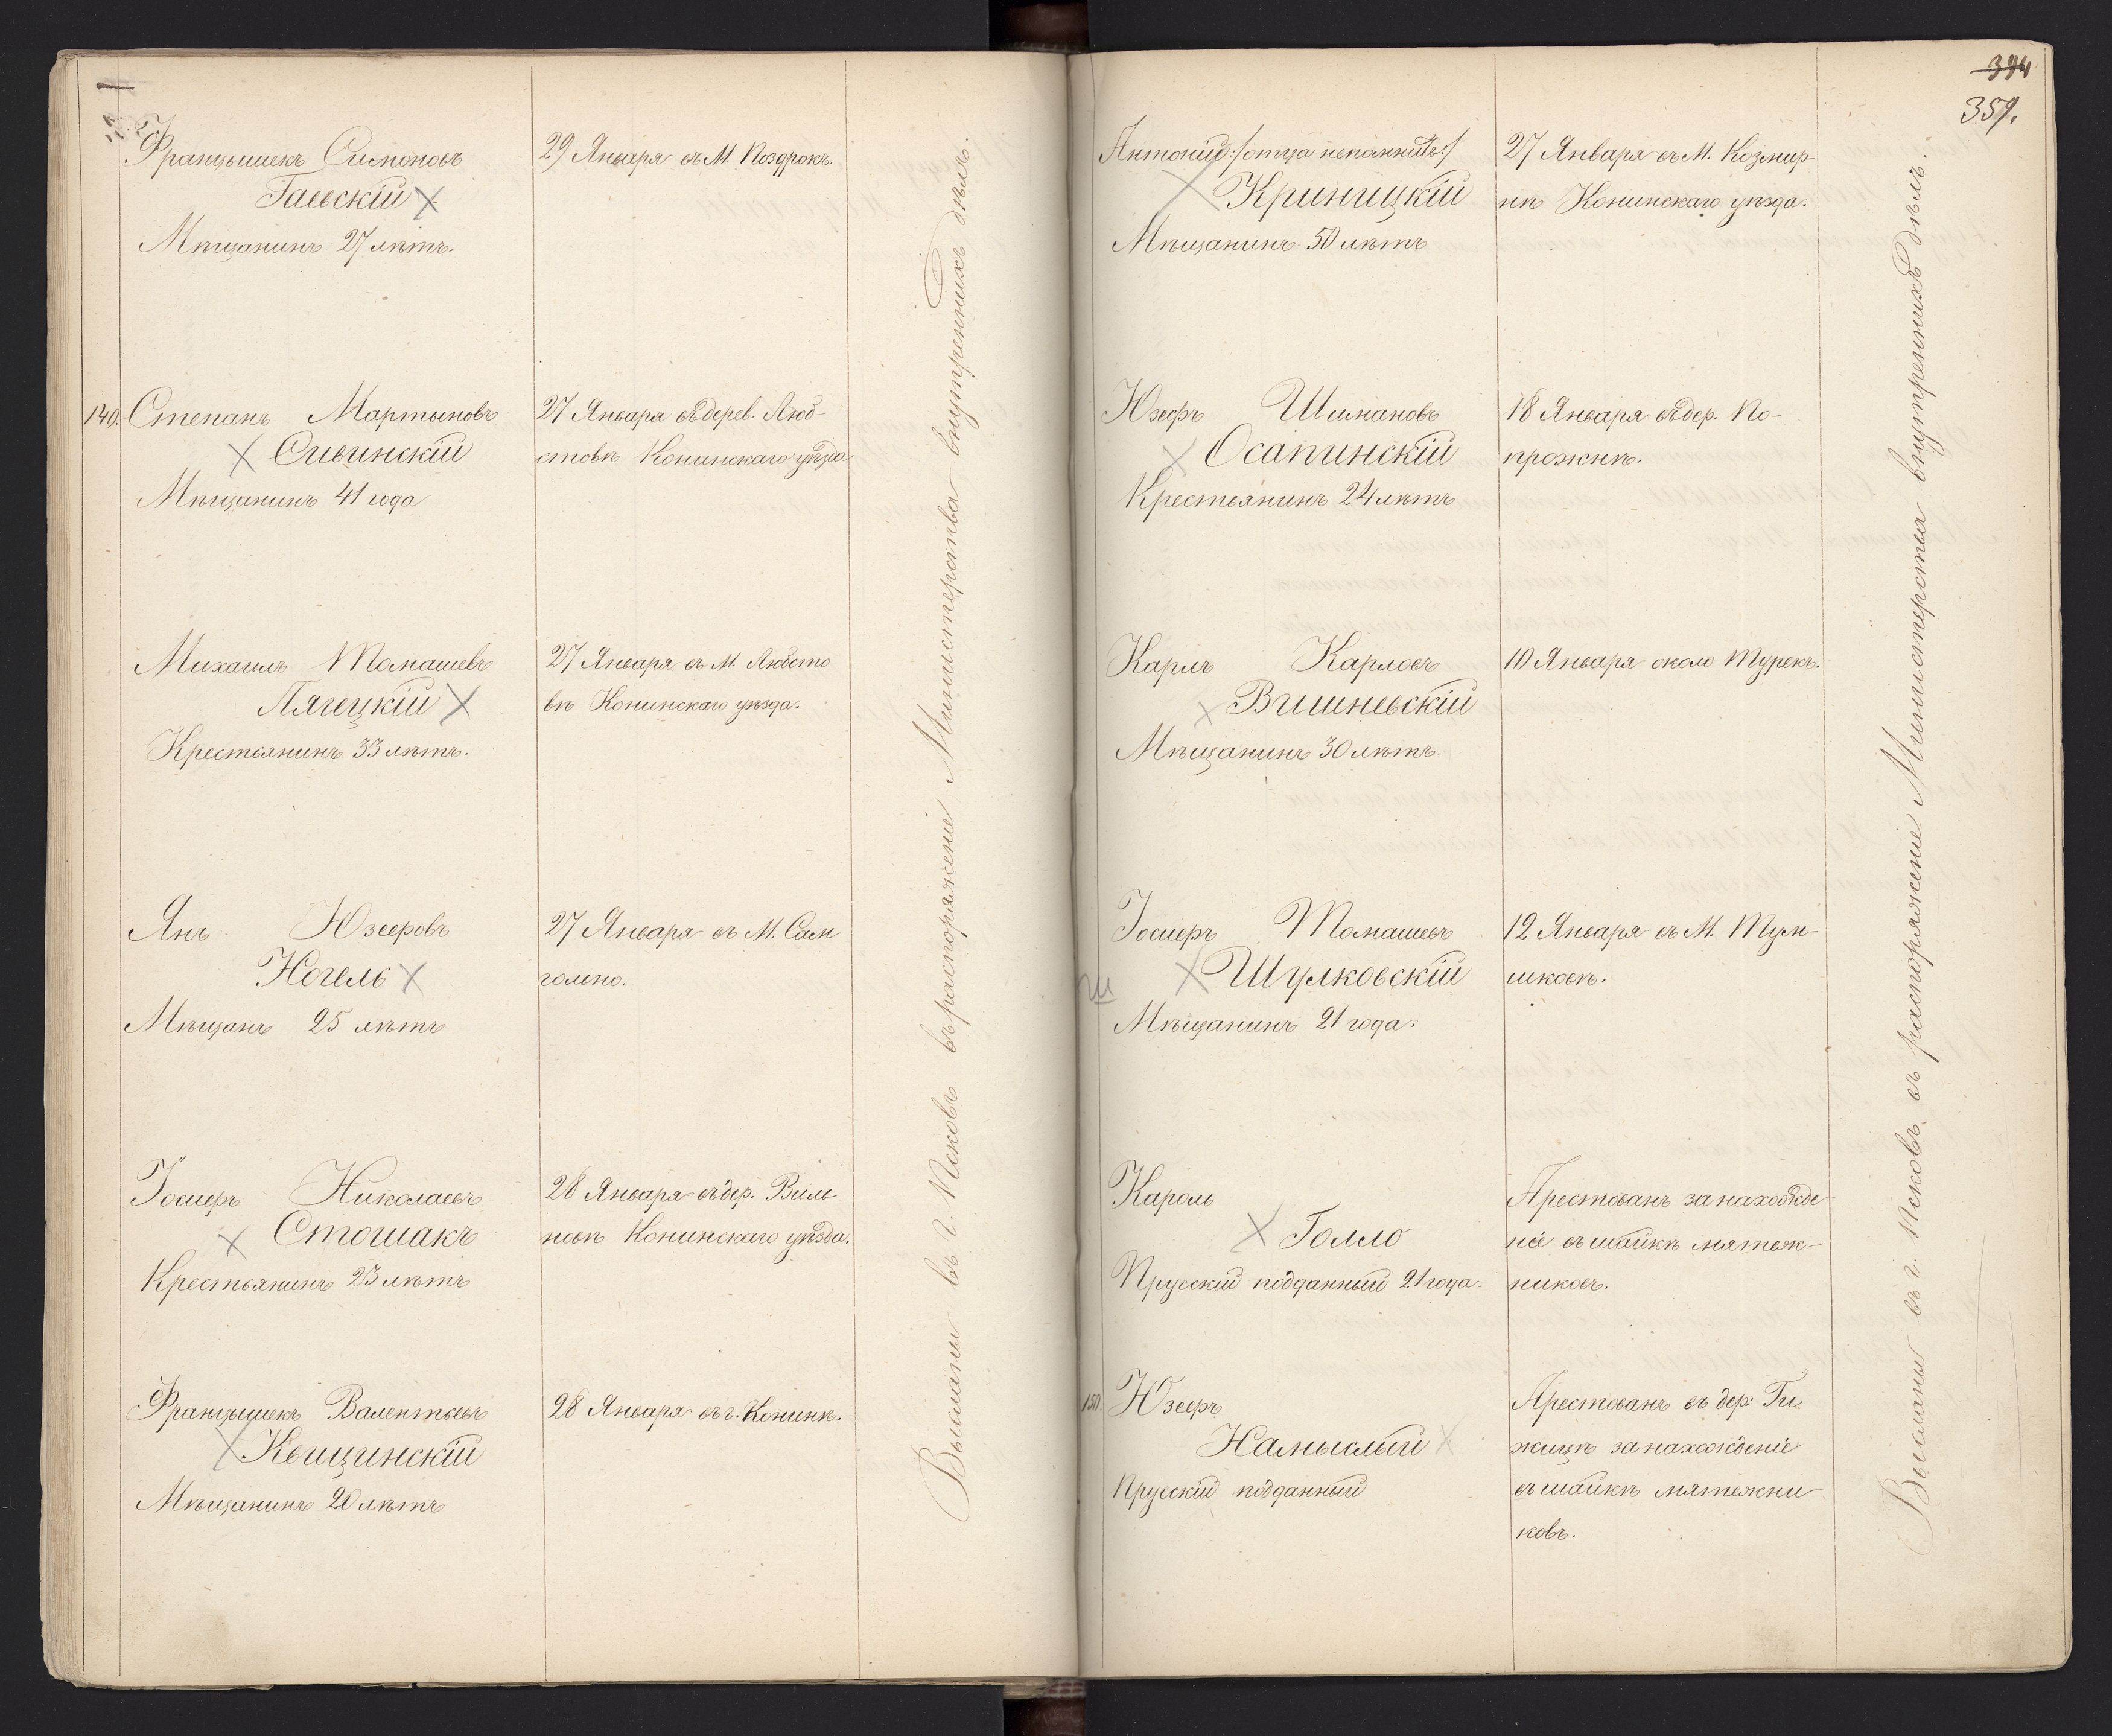 Францышекъ Симоновъ
Гаевскій
Мѣщанинъ 27 лѣтъ.
29 Января въ М. Поздрокъ.
140. Степанъ Мартыновъ
Сивинскій
Мѣщанинъ 41 года
27 Января въ дерев. Люб-
стовѣ Конинскаго уѣзда
Михаилъ Томашевъ
Лягецкій
Крестьянинъ 33 лѣтъ.
27 Января въ М. Любсто
вѣ Конинскаго уѣзда.
Янъ Юзефовъ
Ногель
Мѣщанъ 25 лѣтъ
27 Января въ М. Сам
гольно.
Іосифъ Николаевъ
Стошакъ
Крестьянинъ 23 лѣтъ
28 Января въ дер. Виль
новѣ Конинскаго уѣзда.
Францышекъ Валентьевъ
Квицинскій
Мѣщанинъ 20 лѣтъ
28 Января въ г. Конинѣ.
Высланы въ г. Псковъ въ распоряженіе Министерства внутреннихъ дѣлъ.
394
359.
Антоній :/отца непомнитъ:/
Криницкій
Мѣщанинъ 50 лѣтъ
27 Января въ М. Козмир-
нѣ Конинскаго уѣзда.
Юзефъ Шимановъ
Осапинскій
Крестьянинъ 24 лѣтъ
18 Января въ дер. По-
прожнѣ.
Карлъ Карловъ
Вишневскій
Мѣщанинъ 30 лѣтъ.
10 Января около Турекъ.
Іосифъ Томашевъ
Шулковскій
Мѣщанинъ 21 года.
12 Января въ М. Тули-
шковѣ.
Кароль
Голло
Прусскій подданный 21 года.
Арестованъ за нахожде
ніе въ шайкѣ мятеж-
никовъ.
150. Юзефъ
Намыслый
Прусскій подданный
Арестованъ въ дер. Ги
жицѣ за нахожденіе
въ шайкѣ мятежни
ковъ.
Высланы въ г. Псковъ въ распоряженіе Министерства внутреннихъ дѣлъ.